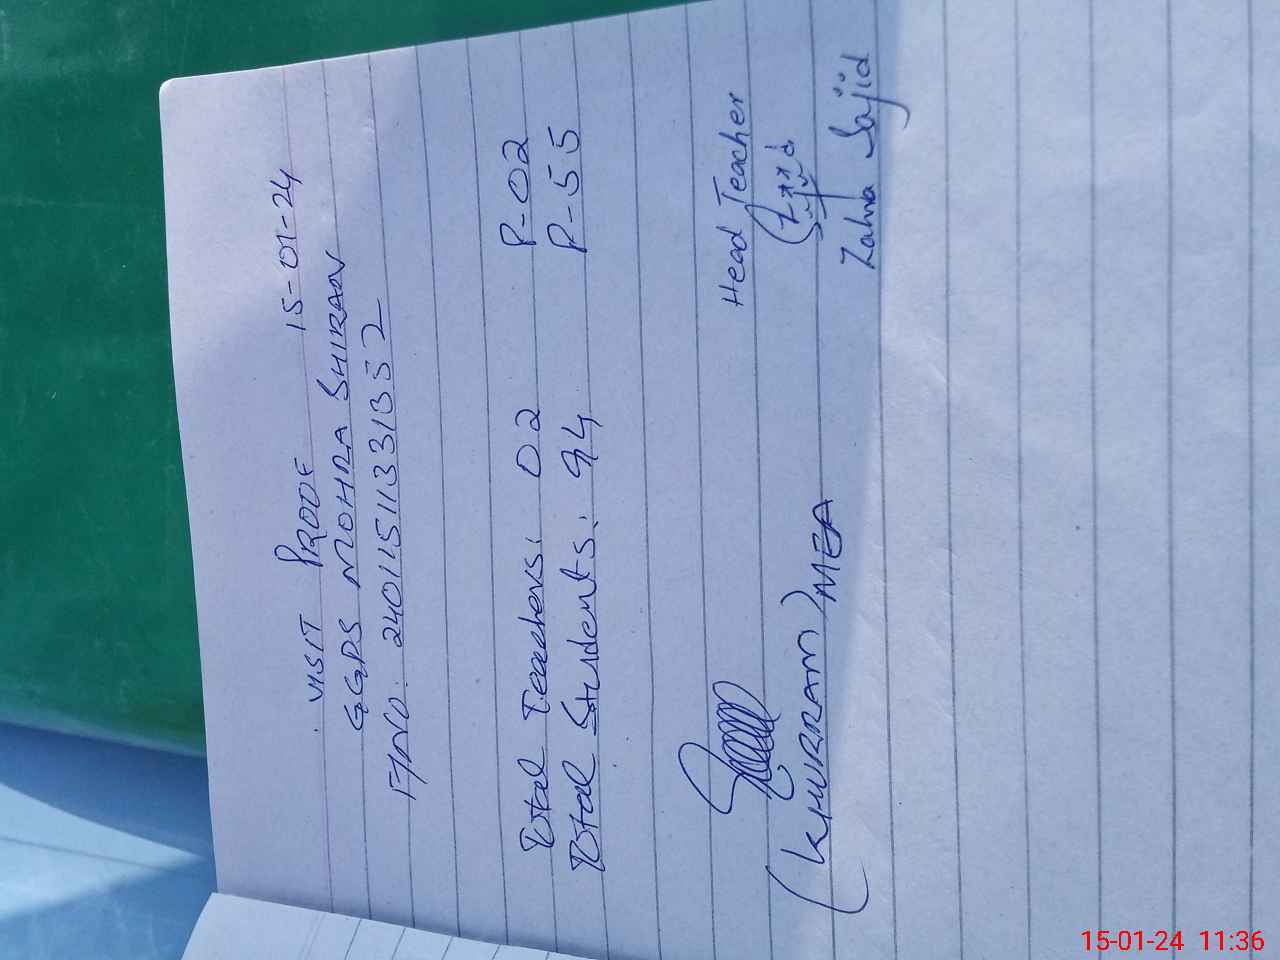 VISIT PROOF 15-01-24
GGPS MOHRA SHIRAN
F/No. 24011511331352
Total Teachers: 02 P-02
Total Students: 94 P-55
Head Teacher
(KHURRAM) MEA
Zahra Sajid
15-01-24 11:36